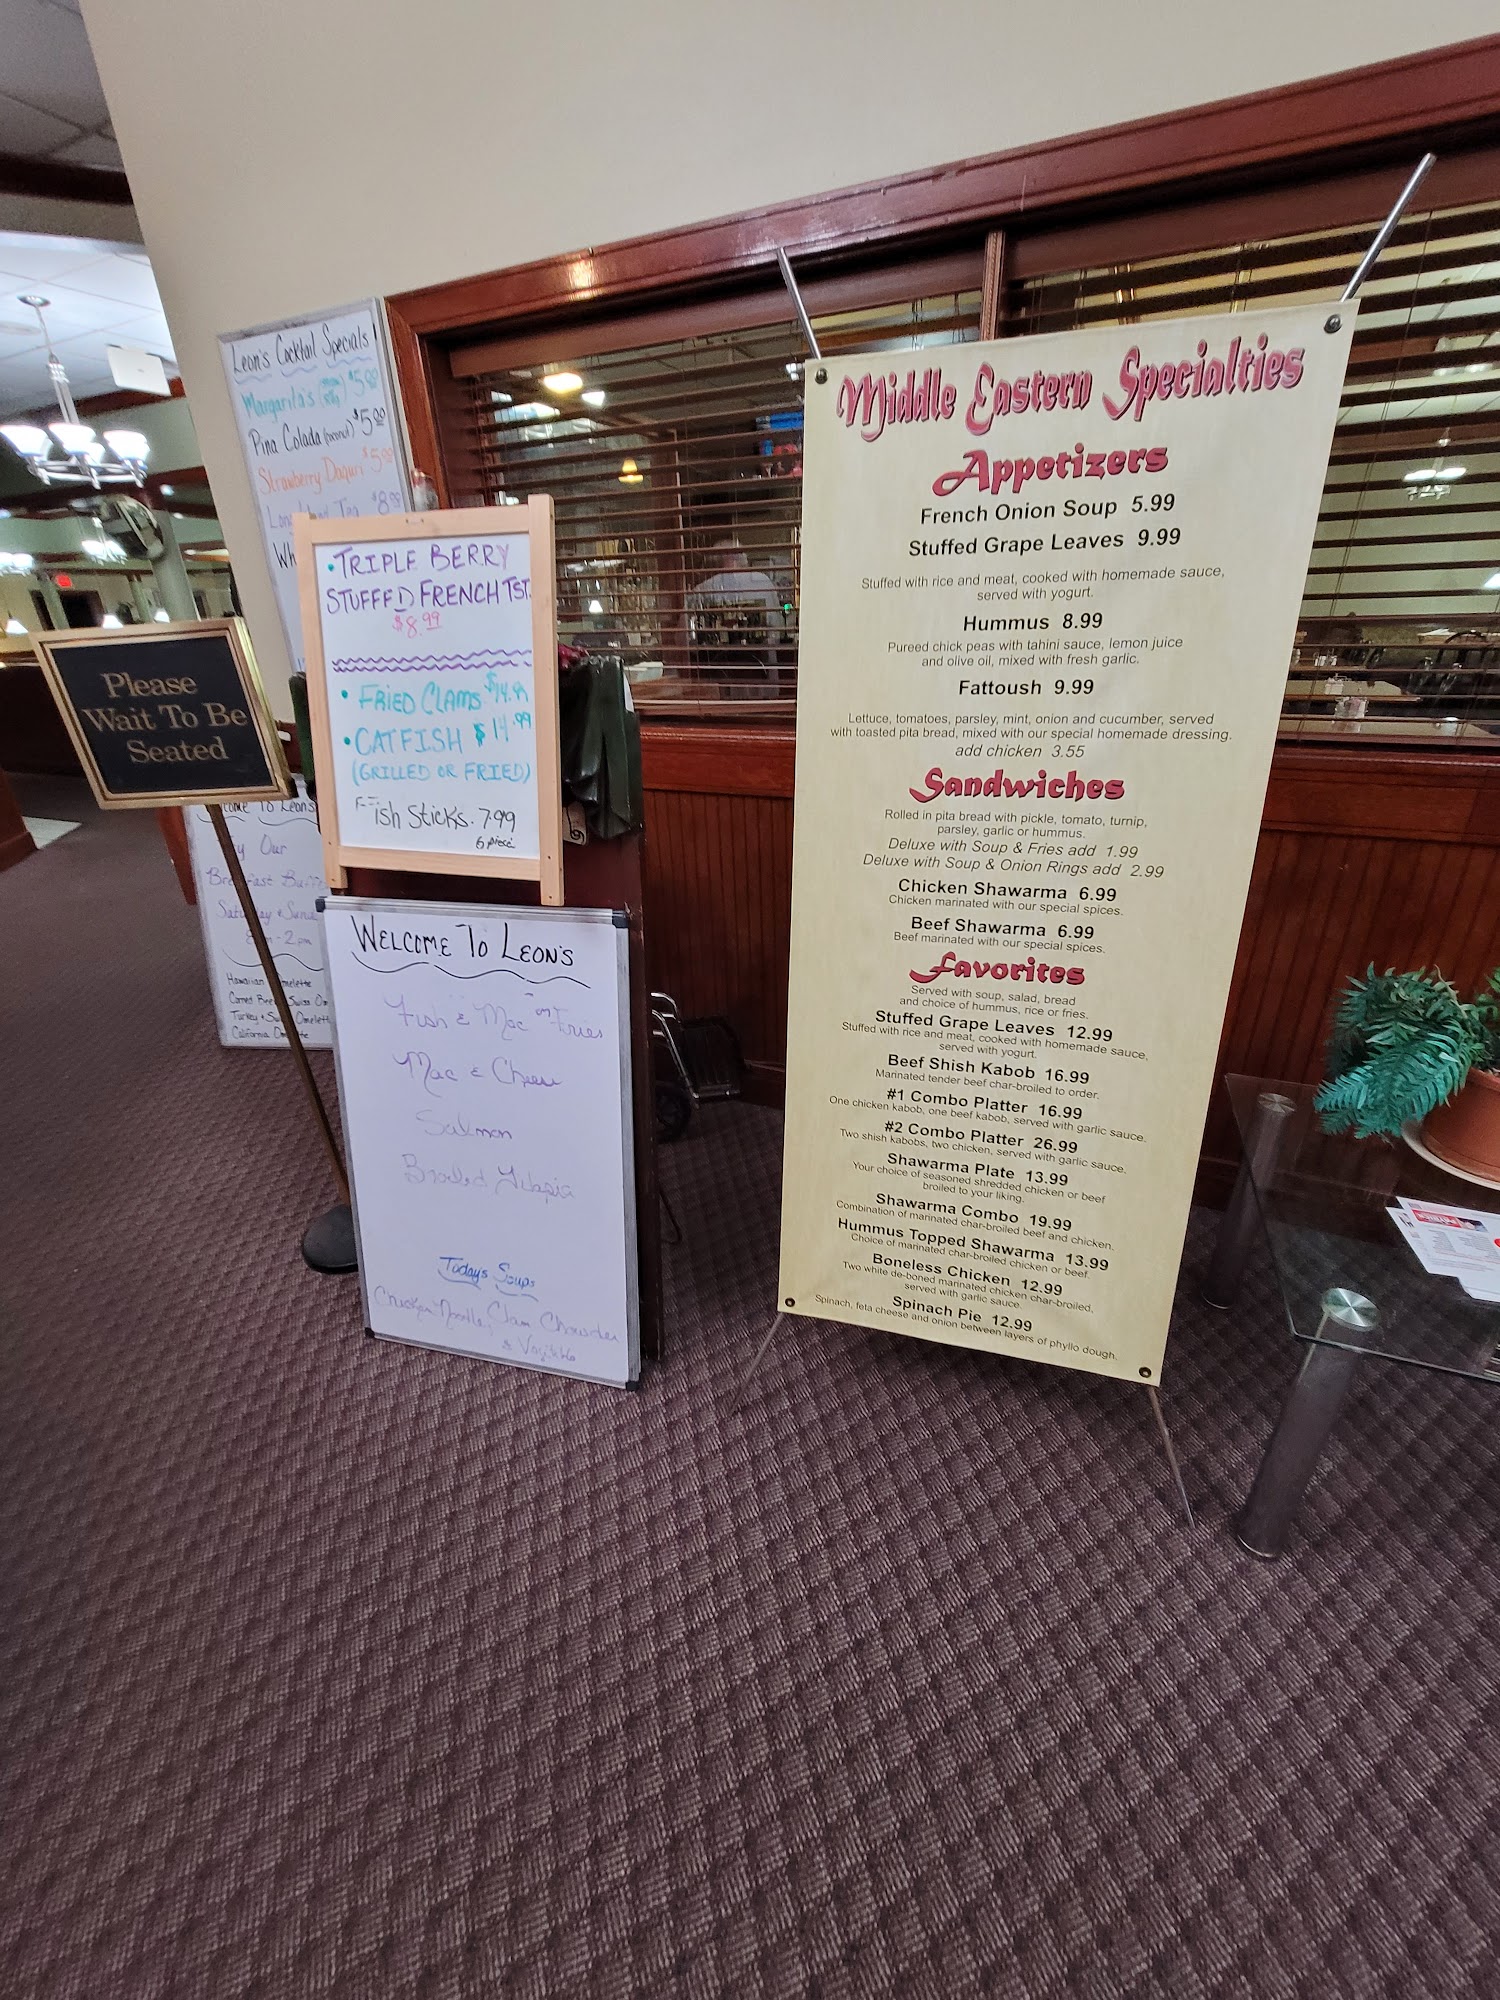 Leon's Cocktail Specials
Margarita's
$5.00
Pina Colada (coconut) $5.00
Strawberry Daquri $5.00
Tea $8.99
Please
Wait To Be
Seated
• TRIPLE BERRY
STUFFFD FRENCH TST.
$8.99
• FRIED CLAMS $14.99
• CATFISH $14.99
(GRILLED OR FRIED)
Fish Sticks. 7.99
6 piece
To Leon's
Our
8 - 2pm
Hawaiian
Corned Beef Swiss
Turkey & Omelett
California
WELCOME TO LEON'S
Fish & Mac or Fries
Mac & Cheese
Salmon
Broiled Tilapia
Today's Soups
Chicken Noodle, Clam Chowder
&
Middle Eastern Specialties
Appetizers
French Onion Soup 5.99
Stuffed Grape Leaves 9.99
Stuffed with rice and meat, cooked with homemade sauce,
served with yogurt.
Hummus 8.99
Pureed chick peas with tahini sauce, lemon juice
and olive oil, mixed with fresh garlic.
Fattoush 9.99
Lettuce, tomatoes, parsley, mint, onion and cucumber, served
with toasted pita bread, mixed with our special homemade dressing.
add chicken 3.55
Sandwiches
Rolled in pita bread with pickle, tomato, turnip,
parsley, garlic or hummus.
Deluxe with Soup & Fries add 1.99
Deluxe with Soup & Onion Rings add 2.99
Chicken Shawarma 6.99
Chicken marinated with our special spices.
Beef Shawarma 6.99
Beef marinated with our special spices.
Favorites
Served with soup, salad, bread
and choice of hummus, rice or fries.
Stuffed Grape Leaves 12.99
Stuffed with rice and meat, cooked with homemade sauce,
served with yogurt.
Beef Shish Kabob 16.99
Marinated tender beef char-broiled to order.
#1 Combo Platter 16.99
One chicken kabob, one beef kabob, served with garlic sauce.
#2 Combo Platter 26.99
Two shish kabobs, two chicken, served with garlic sauce.
Shawarma Plate 13.99
Your choice of seasoned shredded chicken or beef
broiled to your liking.
Shawarma Combo 19.99
Combination of marinated char-broiled beef and chicken.
Hummus Topped Shawarma 13.99
Choice of marinated char-broiled chicken or beef.
Boneless Chicken 12.99
Two white de-boned marinated chicken char-broiled,
served with garlic sauce.
Spinach Pie 12.99
Spinach, feta cheese and onion between layers of phyllo dough.